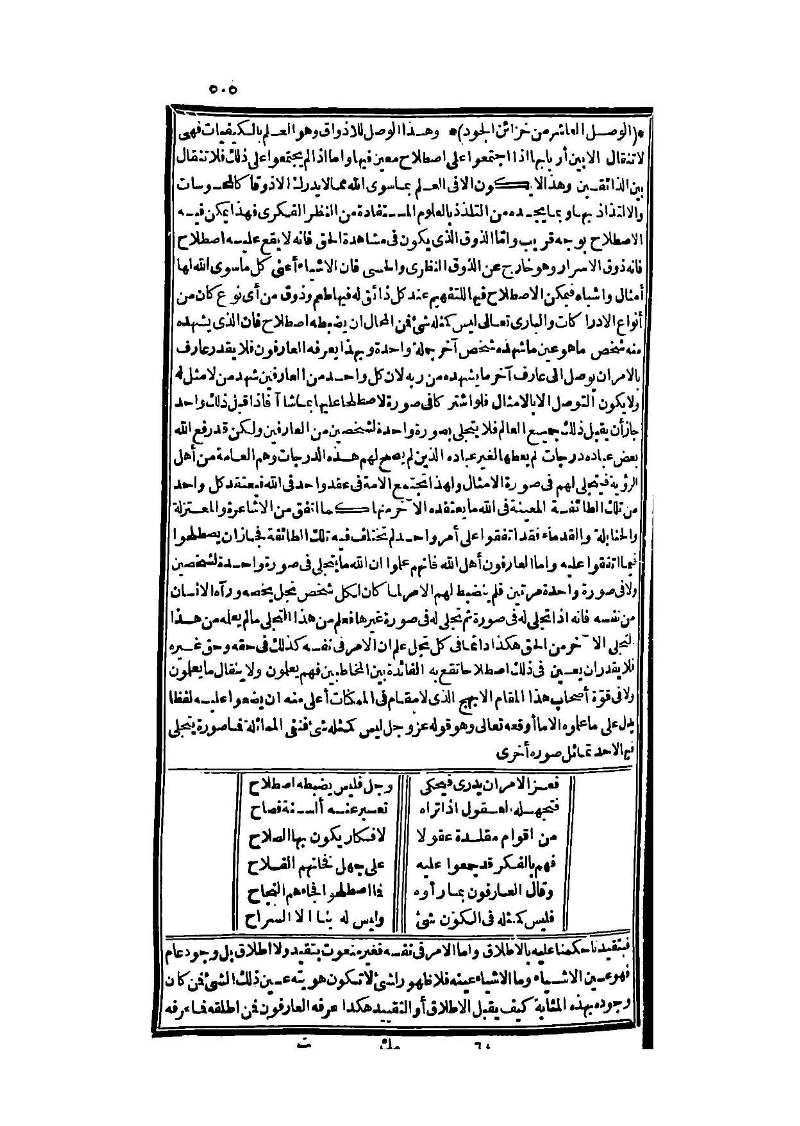 ٥٠٥
*(الوصل العاشر من خزائن الجود)* وهذا الوصل للاذواق وهو العلم بالكيفيات فهى
لا تنقال الابين أربابها اذا اجتمعوا على اصطلاح معين فيها واما اذا لم يجتمعوا على ذلك فلا تنقال
بين الذائقين وهذا لا يكون الا فى العلم بما سوى الله مما لا يدرك الا ذوقا كالمحسوسات
والالتذاذ بها وبما يجده من التلذذ بالعلوم المستفادة من النظر الفكرى فهذا يمكن فيه
الاصطلاح بوجه قريب واما الذوق الذى يكون فى مشاهدة الحق فانه لا يقع عليه اصطلاح
فانه ذوق الاسرار وهو خارج عن الذوق النظرى والحسى فان الاشياء أعنى كل ما سوى الله لها
أمثال واشباه فيمكن الاصطلاح فيها للتفهيم عند كل ذائق له فيها طعم وذوق من أى نوع كان من
أنواع الادراكات والبارى تعالى ليس كمثله شئ فمن المحال ان يضبطه اصطلاح فان الذى يشهده
منه شخص ما هو عين ما شهده شخص آخر جملة واحدة وبهذا يعرفه العارفون فلا يقدر عارف
بالامر ان يوصل الى عارف آخر ما يشهده من ربه لان كل واحد من العارفين شهد من لا مثل له
ولا يكون التوصل الا بالامثال فلو اشتركا فى صورة لاصطلحا عليها بما شاآ فاذا قبل ذلك واحد
جاز أن يقبل ذلك جميع العالم فلا يتجلى بصورة واحدة لشخصين من العارفين ولكن قد رفع الله
بعض عباده درجات لم يعطها لغير عباده الذين لم يصح لهم هذه الدرجات وهم العامة من أهل
الرؤية فيتجلى لهم فى صورة الامثال ولهذا تجتمع الامة فى عقد واحد فى الله فيعتقد كل واحد
من تلك الطائفة المعينة فى الله ما يعتقده الآخر منها كما اتفق من الاشاعرة والمعتزلة
والحنابلة والقدماء فقد اتفقوا على أمر واحد لم تختلف فيه تلك الطائفة فجاز ان يصطلحوا
فيما اتفقوا عليه واما العارفون أهل الله فانهم علموا ان الله ما يتجلى فى صورة واحدة لشخصين
ولا فى صورة واحدة مرتين فلم ينضبط لهم الامر لما كان لكل شخص تجل يخصه ورآه الانسان
من نفسه فانه اذا تجلى له فى صورة ثم تجلى له فى صورة غيرها فعلم من هذا التجلى ما لم يعلمه من هذا
التجلى الآخر من الحق هكذا دائما فى كل تجل علم ان الامر فى نفسه كذلك فى حقه وحق غيره
فلا يقدر ان يعين فى ذلك اصطلاحا تقع به الفائدة بين المخاطبين فهم يعلمون ولا ينقال ما يعلمون
ولا فى قوة أصحاب هذا المقام الابهج الذى لا مقام فى الممكنات أعلى منه ان يضعوا عليه لفظا
يدل على ما علموه الا ما أوقعه تعالى وهو قوله عز وجل ليس كمثله شئ فنفى المماثلة فما صورة يتجلى
فيها لاحد تماثل صورة أخرى
فعز الامر ان يدرى فيحكى وجل فليس يضبطه اصطلاح
فتجهله العقول اذا تراه تعبر عنه ألسنة فصاح
من اقوام مقلدة عقولا لافكار يكون بها الصلاح
فهم بالفكر قد جمعوا عليه على جهل فخانهم الفلاح
وقال العارفون بما رأوه فما اصطلحوا فجاءهم النجاح
فليس كمثله فى الكون شئ وليس له بنا الا السراح
فبتقيدنا حكمنا عليه بالاطلاق واما الامر فى نفسه فغير منعوت بتقيد ولا اطلاق بل وجود عام
فهو عين الاشياء وما الاشياء عينه فلا ظهور لشئ لا تكون هويته عين ذلك الشئ فمن كان
وجوده بهذه المثابة كيف يقبل الاطلاق أو التقييد هكذا عرفه العارفون فمن اطلقه فما عرفه
٦٤ مك ث